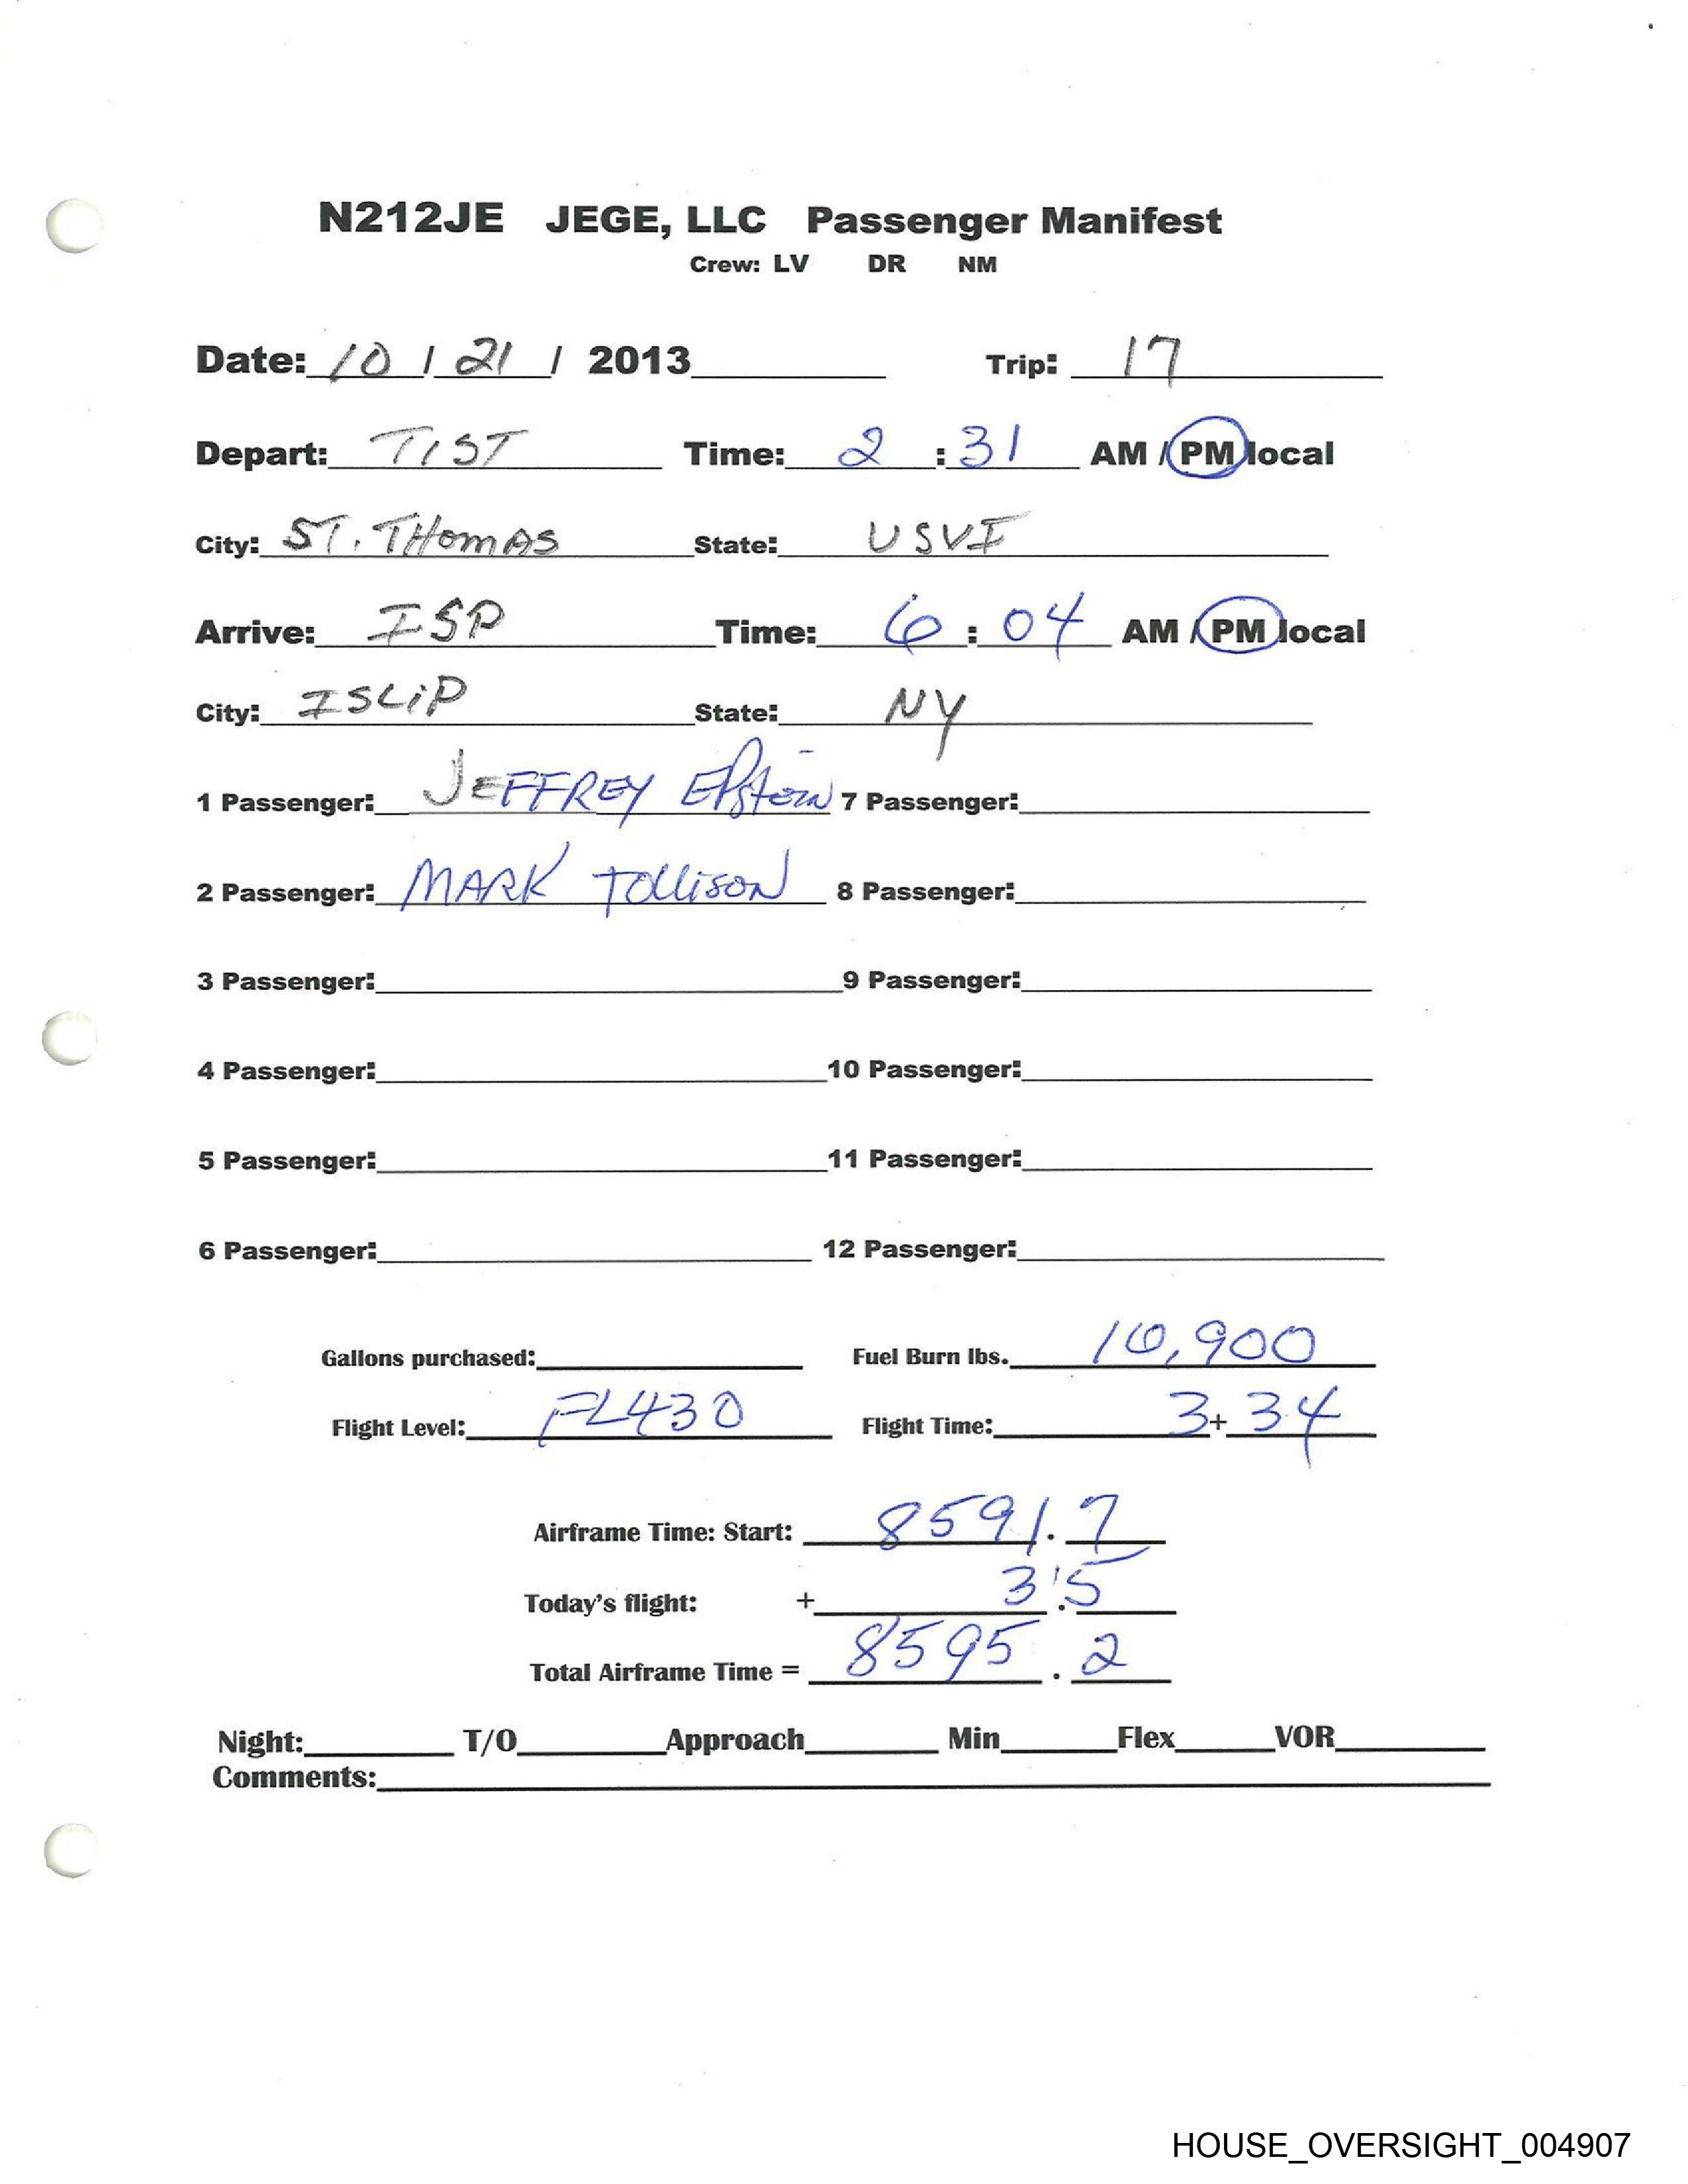 N212JE JEGE, LLC Passenger Manifest
Crew: LV DR NM
Date: 10 / 21 / 2013 Trip: 17
Depart: TIST Time: 2 : 31 AM / PM local
City: ST. THOMAS State: USVI
Arrive: ISP Time: 6 : 04 AM / PM local
City: ISLIP State: NY
1 Passenger: JEFFREY EPstein 7 Passenger:
2 Passenger: MARK TOLLISON 8 Passenger:
3 Passenger: 9 Passenger:
4 Passenger: 10 Passenger:
5 Passenger: 11 Passenger:
6 Passenger: 12 Passenger:
Gallons purchased: Fuel Burn lbs. 16,900
Flight Level: FL430 Flight Time: 3 + 34
Airframe Time: Start: 8591.7
Today's flight: + 3.5
Total Airframe Time = 8595.2
Night: T/O Approach Min Flex VOR
Comments:
HOUSE_OVERSIGHT_004907